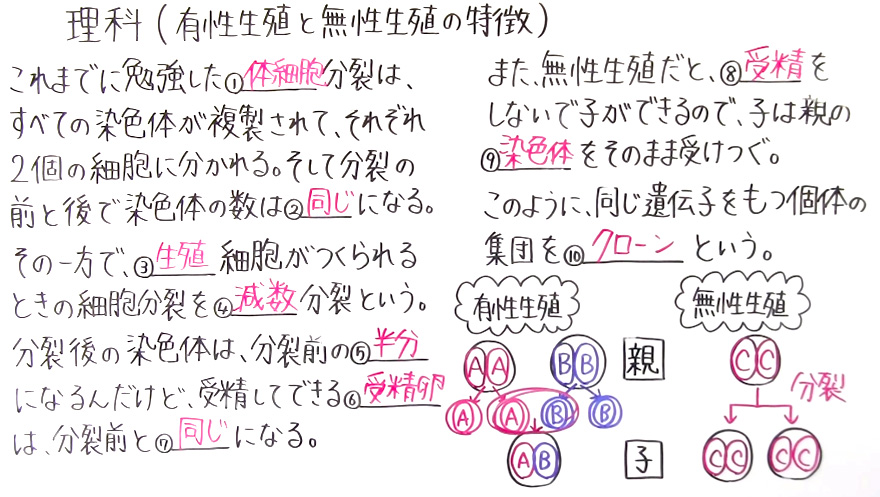 理科(有性生殖と無性生殖の特徴)
これまでに勉強した①体細胞分裂は、
すべての染色体が複製されて、それぞれ
2個の細胞に分かれる。そして分裂の
前と後で染色体の数は②同じになる。
その一方で、③生殖細胞がつくられる
ときの細胞分裂を④減数分裂という。
分裂後の染色体は、分裂前の⑤半分
になるんだけど、受精してできる⑥受精卵
は、分裂前と⑦同じになる。
また、無性生殖だと、⑧受精を
しないで子ができるので、子は親の
⑨染色体をそのまま受けつぐ。
このように、同じ遺伝子をもつ個体の
集団を⑩クローンという。
有性生殖
AA BB
親
A A B B
AB
子
無性生殖
CC
分裂
CC CC